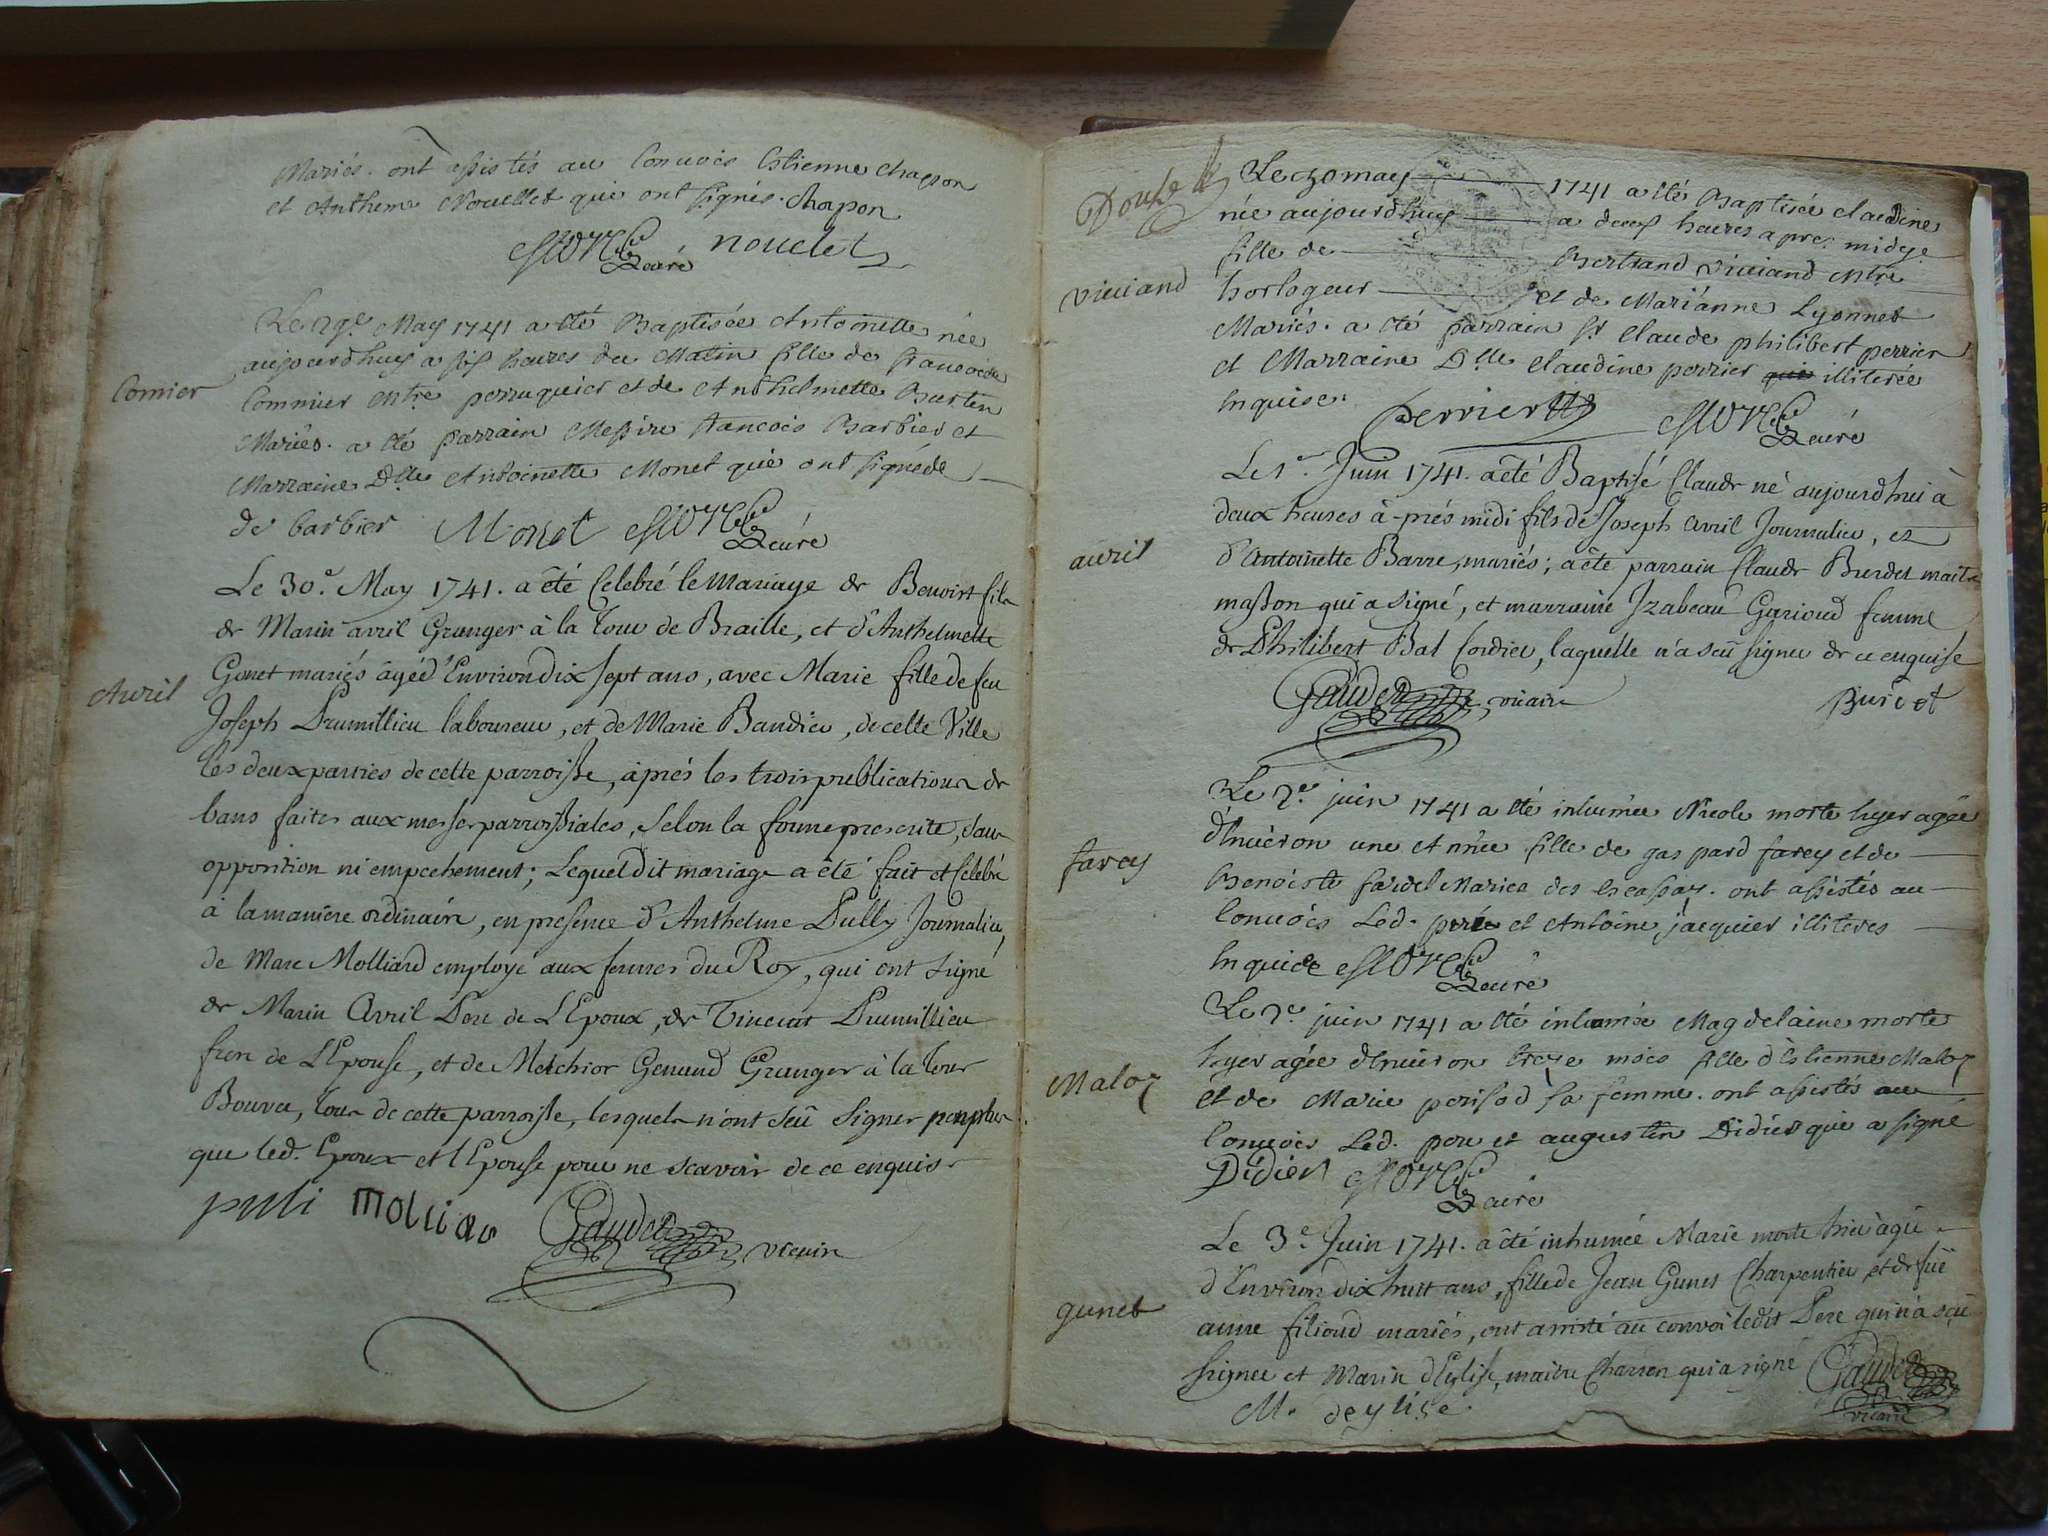 Mariés. ont assistés au Convoès Estienne chapon
et Antheme Nouellet qui ont signés. chapon
Curé nouelet
Le 29e May 1741 a été Baptisée Antoinette née
aujourdhuy a six heures du Matin fille de francois
Comier
Commier Mtre perruquier et de Anthelmette Burtin
Mariés. a été parrain Messire francois Barbier et
Marraine Dlle Antoinette Monet qui ont signé de
de barbier Monet Curé
Le 30e. May 1741. a été Celebré le Mariage de Benoist fils
de Marin avril Granger à la Tour de Braille, et d'Anthelmette
Gonet mariés âgé d'Environ dix sept ans, avec Marie fille de feu
Avril
Joseph Drumillieu laboureur, et de Marie Baudier, de cette Ville
les deux parties de cette parroisse, àprés les trois publications de
bans faites aux messes parroissiales, Selon la forme prescrite, sans
opposition ni empechement; Lequel dit mariage a été fait et Celebré
à la maniere ordinaire, en presence d'Anthelme Pully Journalier,
de Marc Molliard employé aux fermes du Roy, qui ont signé
de Marin Avril Pere de L'Epoux, de Vincent Drumillieu
frere de L'Epouse, et de Melchior Genand Granger à la Tour
Bouver, tous de cette parroisse, lesquels n'ont sçû signer non plus
que led. Epoux et l'Epouse pour ne scavoir de ce enquis
puli mollias Gaudet vicaire
Le 30 may 1741 a été Baptisée claudine
née aujourdhuy a deux heures apres midy
fille de Bertrand Viuiand Mtre
Viuiand
horlogeur et de Marianne Lyonnet
Mariés. a été parrain Sr Claude philibert perrier
et Marraine Dlle claudine perrier illiterée
Enquise. perrier Curé
Le 1er. Juin 1741. a été Baptisé Claude né aujourdhui à
deux heures à-prés midi fils de Joseph Avril Journalier, et
auril
d'Antoinette Barre, mariés; a été parrain Claude Burdet maitre
masson qui a signé, et marraine Izabeau Garioud femme
de Philibert Bal Cordier, laquelle n'a sçû signer de ce enquise
Gaudet vicaire Burdet
Le 2e. juin 1741 a été inhumée Nicole morte hyer agée
d'Enuiron une année fille de gaspard farcy et de
farcy
Benoiste fardel Mariés des Escassay. ont assistés au
Conuoès Led. pere et Antoine jacquier illiteres
Enquis Curé
Le 2e juin 1741 a été inhumée Magdelaine morte
hyer agée d'Enuiron treze mois fille d'Estienne Maloz
Maloz
et de Marie perisod sa femme. ont assistés au
Conuoès Led. pere et augustin Didier qui a signé
Didier Curé
Le 3e. Juin 1741. a été inhumée Marie morte hier agée
d'Environ dix huit ans, fille de Jean Gunet Charpentier et de fuë
gunet
anne filioud mariés, ont assisté au convoi ledit Pere qui n'a sçû
signer et Marin d'Eglise, maitre Charron qui a signé Gaudet
M. deglise. vicaire